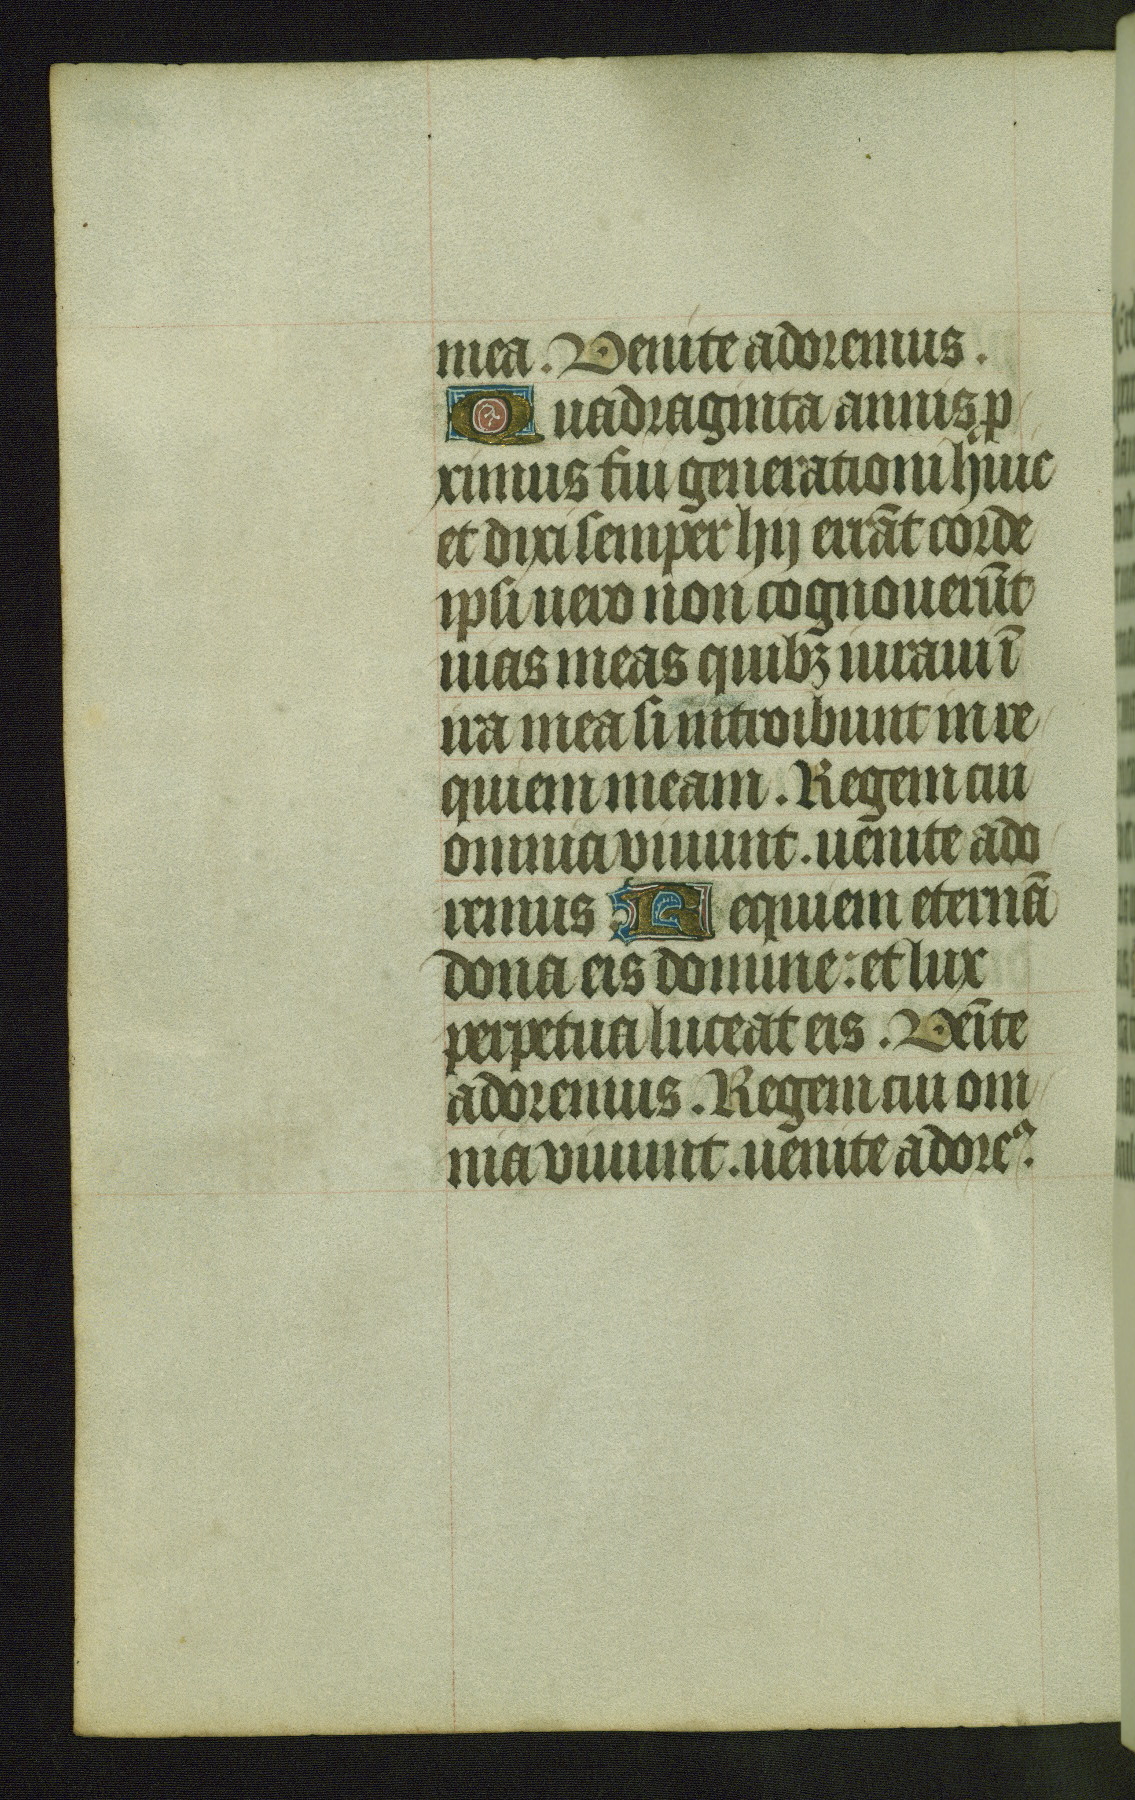 mea. Venite adoremus.
Quadraginta annis ꝓ
ximus fui generationi huic
et dixi semper hij errāt corde
ipsi uero non cognouerūt
uias meas quibꝫ iuraui ī
ira mea si introibunt in re
quiem meam. Regem cui
omnia viuunt. uenite ado
remus Requiem eternā
dona eis domine: et lux
perpetua luceat eis. Veīte
adoremus. Regem cui om
nia viuunt. uenite adoreꝰ.